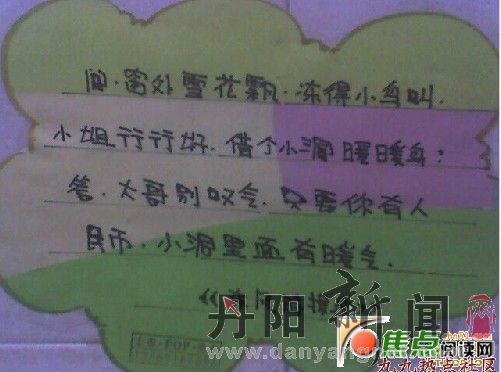 问.窗外雪花飘.冻得小鸟叫.
小姐行行好.借个小洞暖暖鸟:
答.大哥别叹气.只要你有人
民币.小洞里面有暖气.
丹阳新闻
www.danyang
焦点
阅读网
九九热点社区